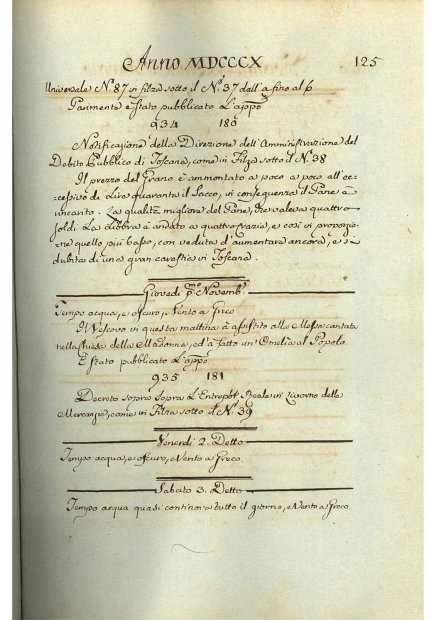 Anno MDCCCX 125
Universale N.º 87 in filza sotto il N.º 37 dall' a fino al p
Parimente è stato pubblicato l'appº
934 180
Notificazione della Direzione dell'Amministrazione del
Debito Pubblico di Toscana, come in Filza sotto il N.º 38
Il prezzo del Grano è ammontato a poco a poco all'ec-
cessivo di Lire quaranta il Sacco, in conseguenza il Pane è
rincarito. La qualità migliore del Pane, che valeva quattro
soldi la Libbra è andato a quattro grazie, e così in proporzio-
ne quello più basso, con veduta d'aumentare ancora, e si
dubita di una gran carestia in Toscana.
Giovedì p.mo Novemb.
Tempo acqua, e oscuro, e Vento a Greco
Il Vescovo in questa mattina è assistito alla Messa cantata
nella Chiesa della Madonna, ed à fatto un'Omelia al Popolo.
È stato pubblicato l'appº
935 181
Decreto sopra sopra l'Entrepôt Reale in Livorno delle
Mercanzie, come in Filza sotto il N. 39
Venerdì 2. Detto
Tempo acqua, e oscuro, e Vento a Greco.
Sabato 3. Detto
Tempo acqua quasi continova tutto il giorno, e Vento a Greco